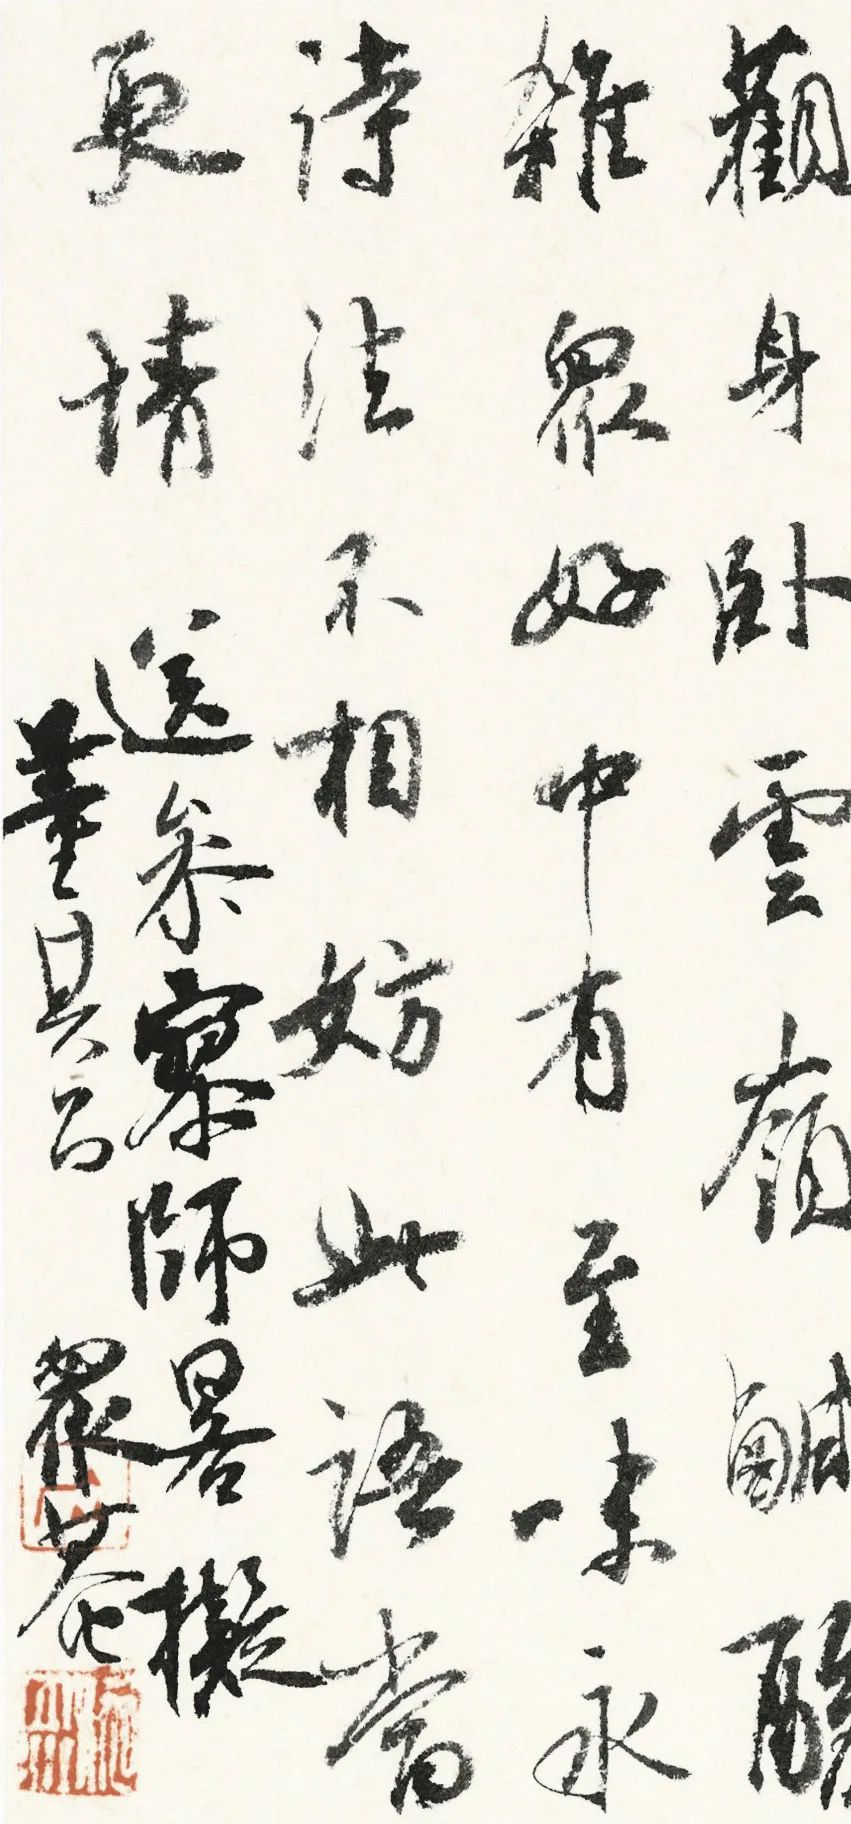 觀身卧雲嶺鹹酸
雜眾好中有至味永
詩法不相妨此語當
更請
送參寥師畧擬
董其昌